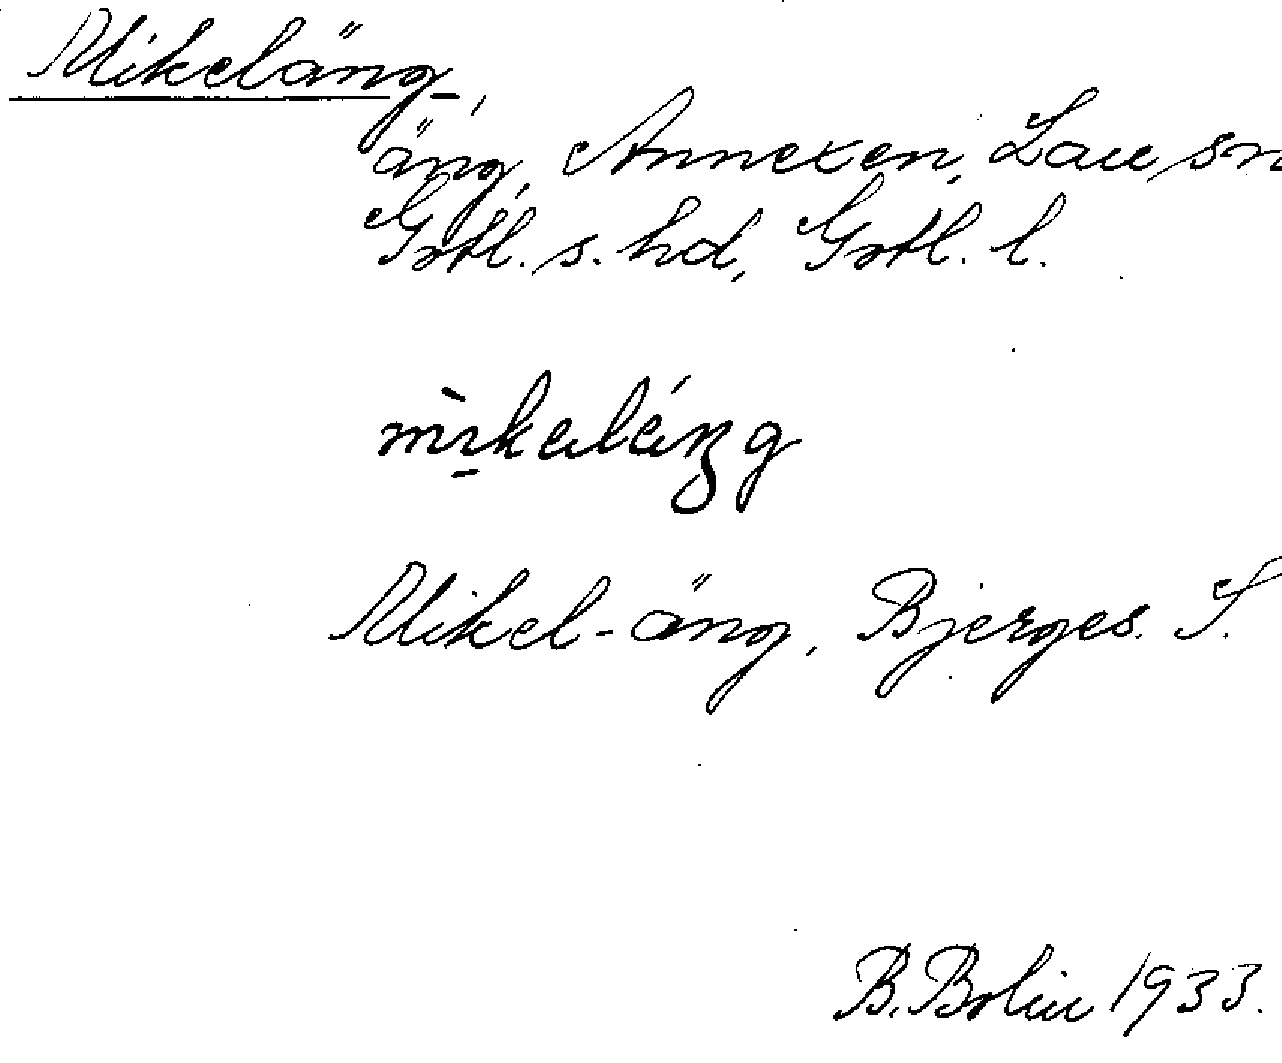 Mikeläng,
äng, Annexen, Lau sn
Gotl. s. hd, Gotl. l.
Mikel-äng, Bjerges. S.
B. Bolin 1933.